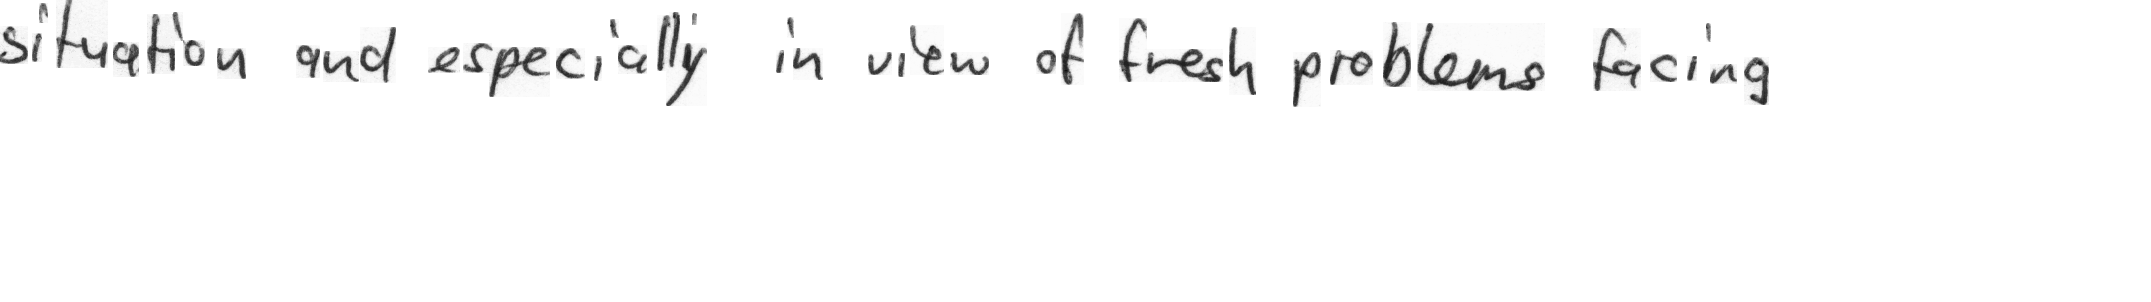 situation and especially in view of fresh problems facing